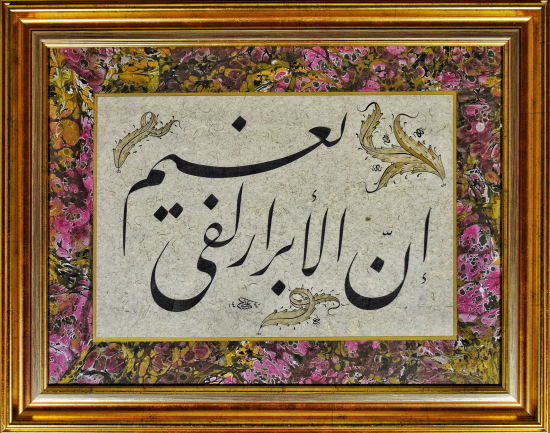 إنّ الأبرار لفي
نعيم